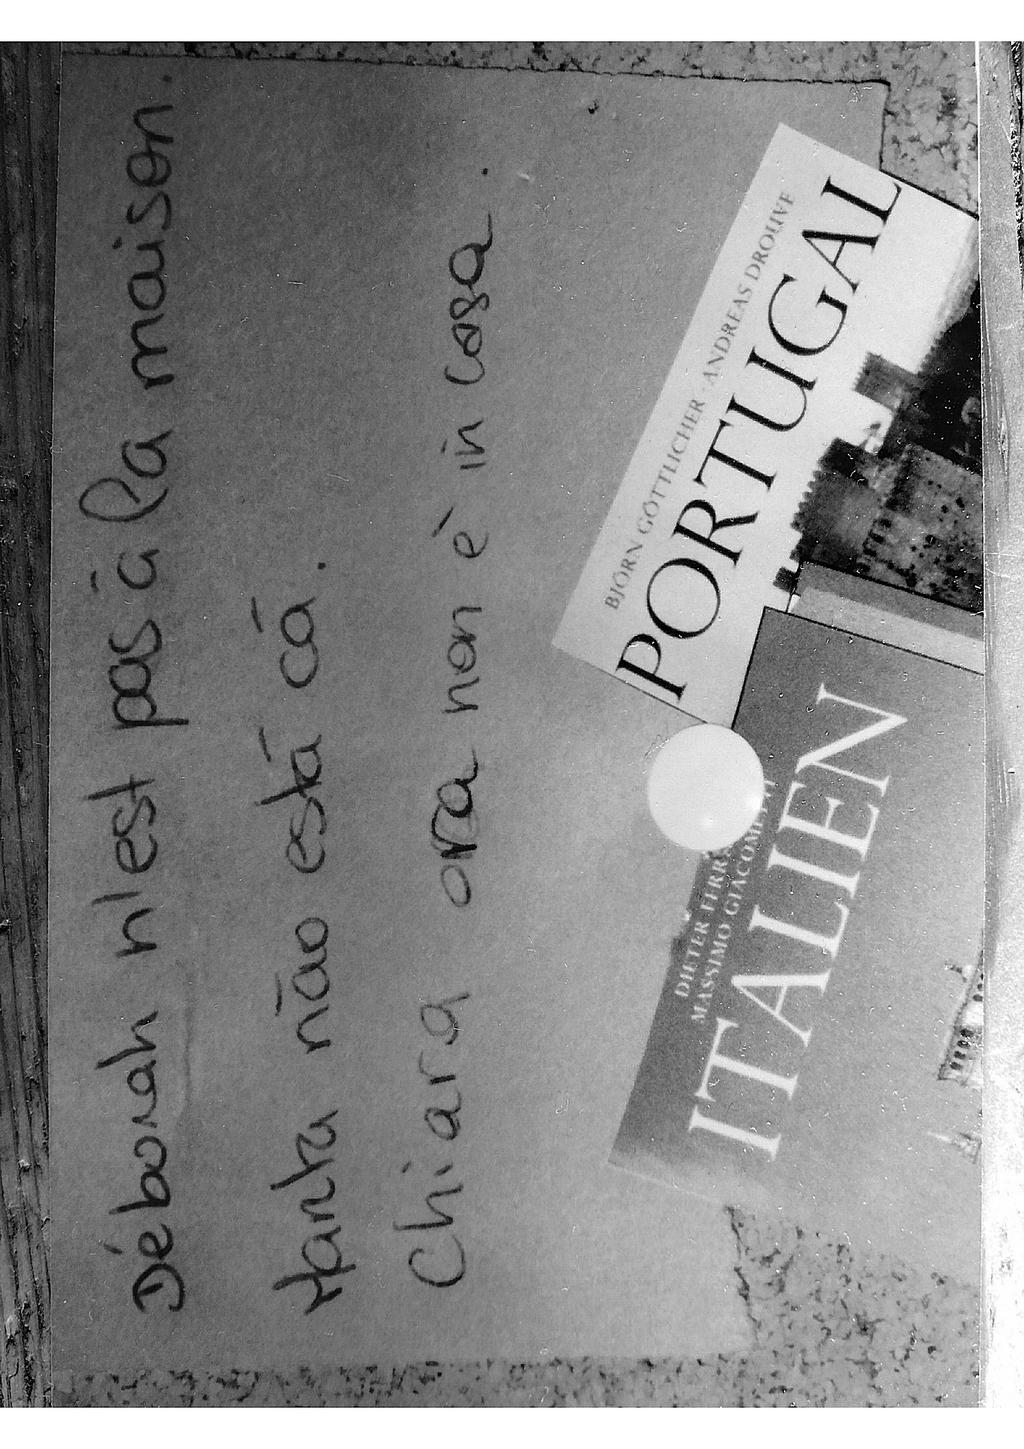 Déborah n'est pas à la maison.
Marta não está cá.
Chiara ora non è in casa.
BJÖRN GÖTTLICHER · ANDREAS DROUVE
PORTUGAL
DIETER
MASSIMO
ITALIEN